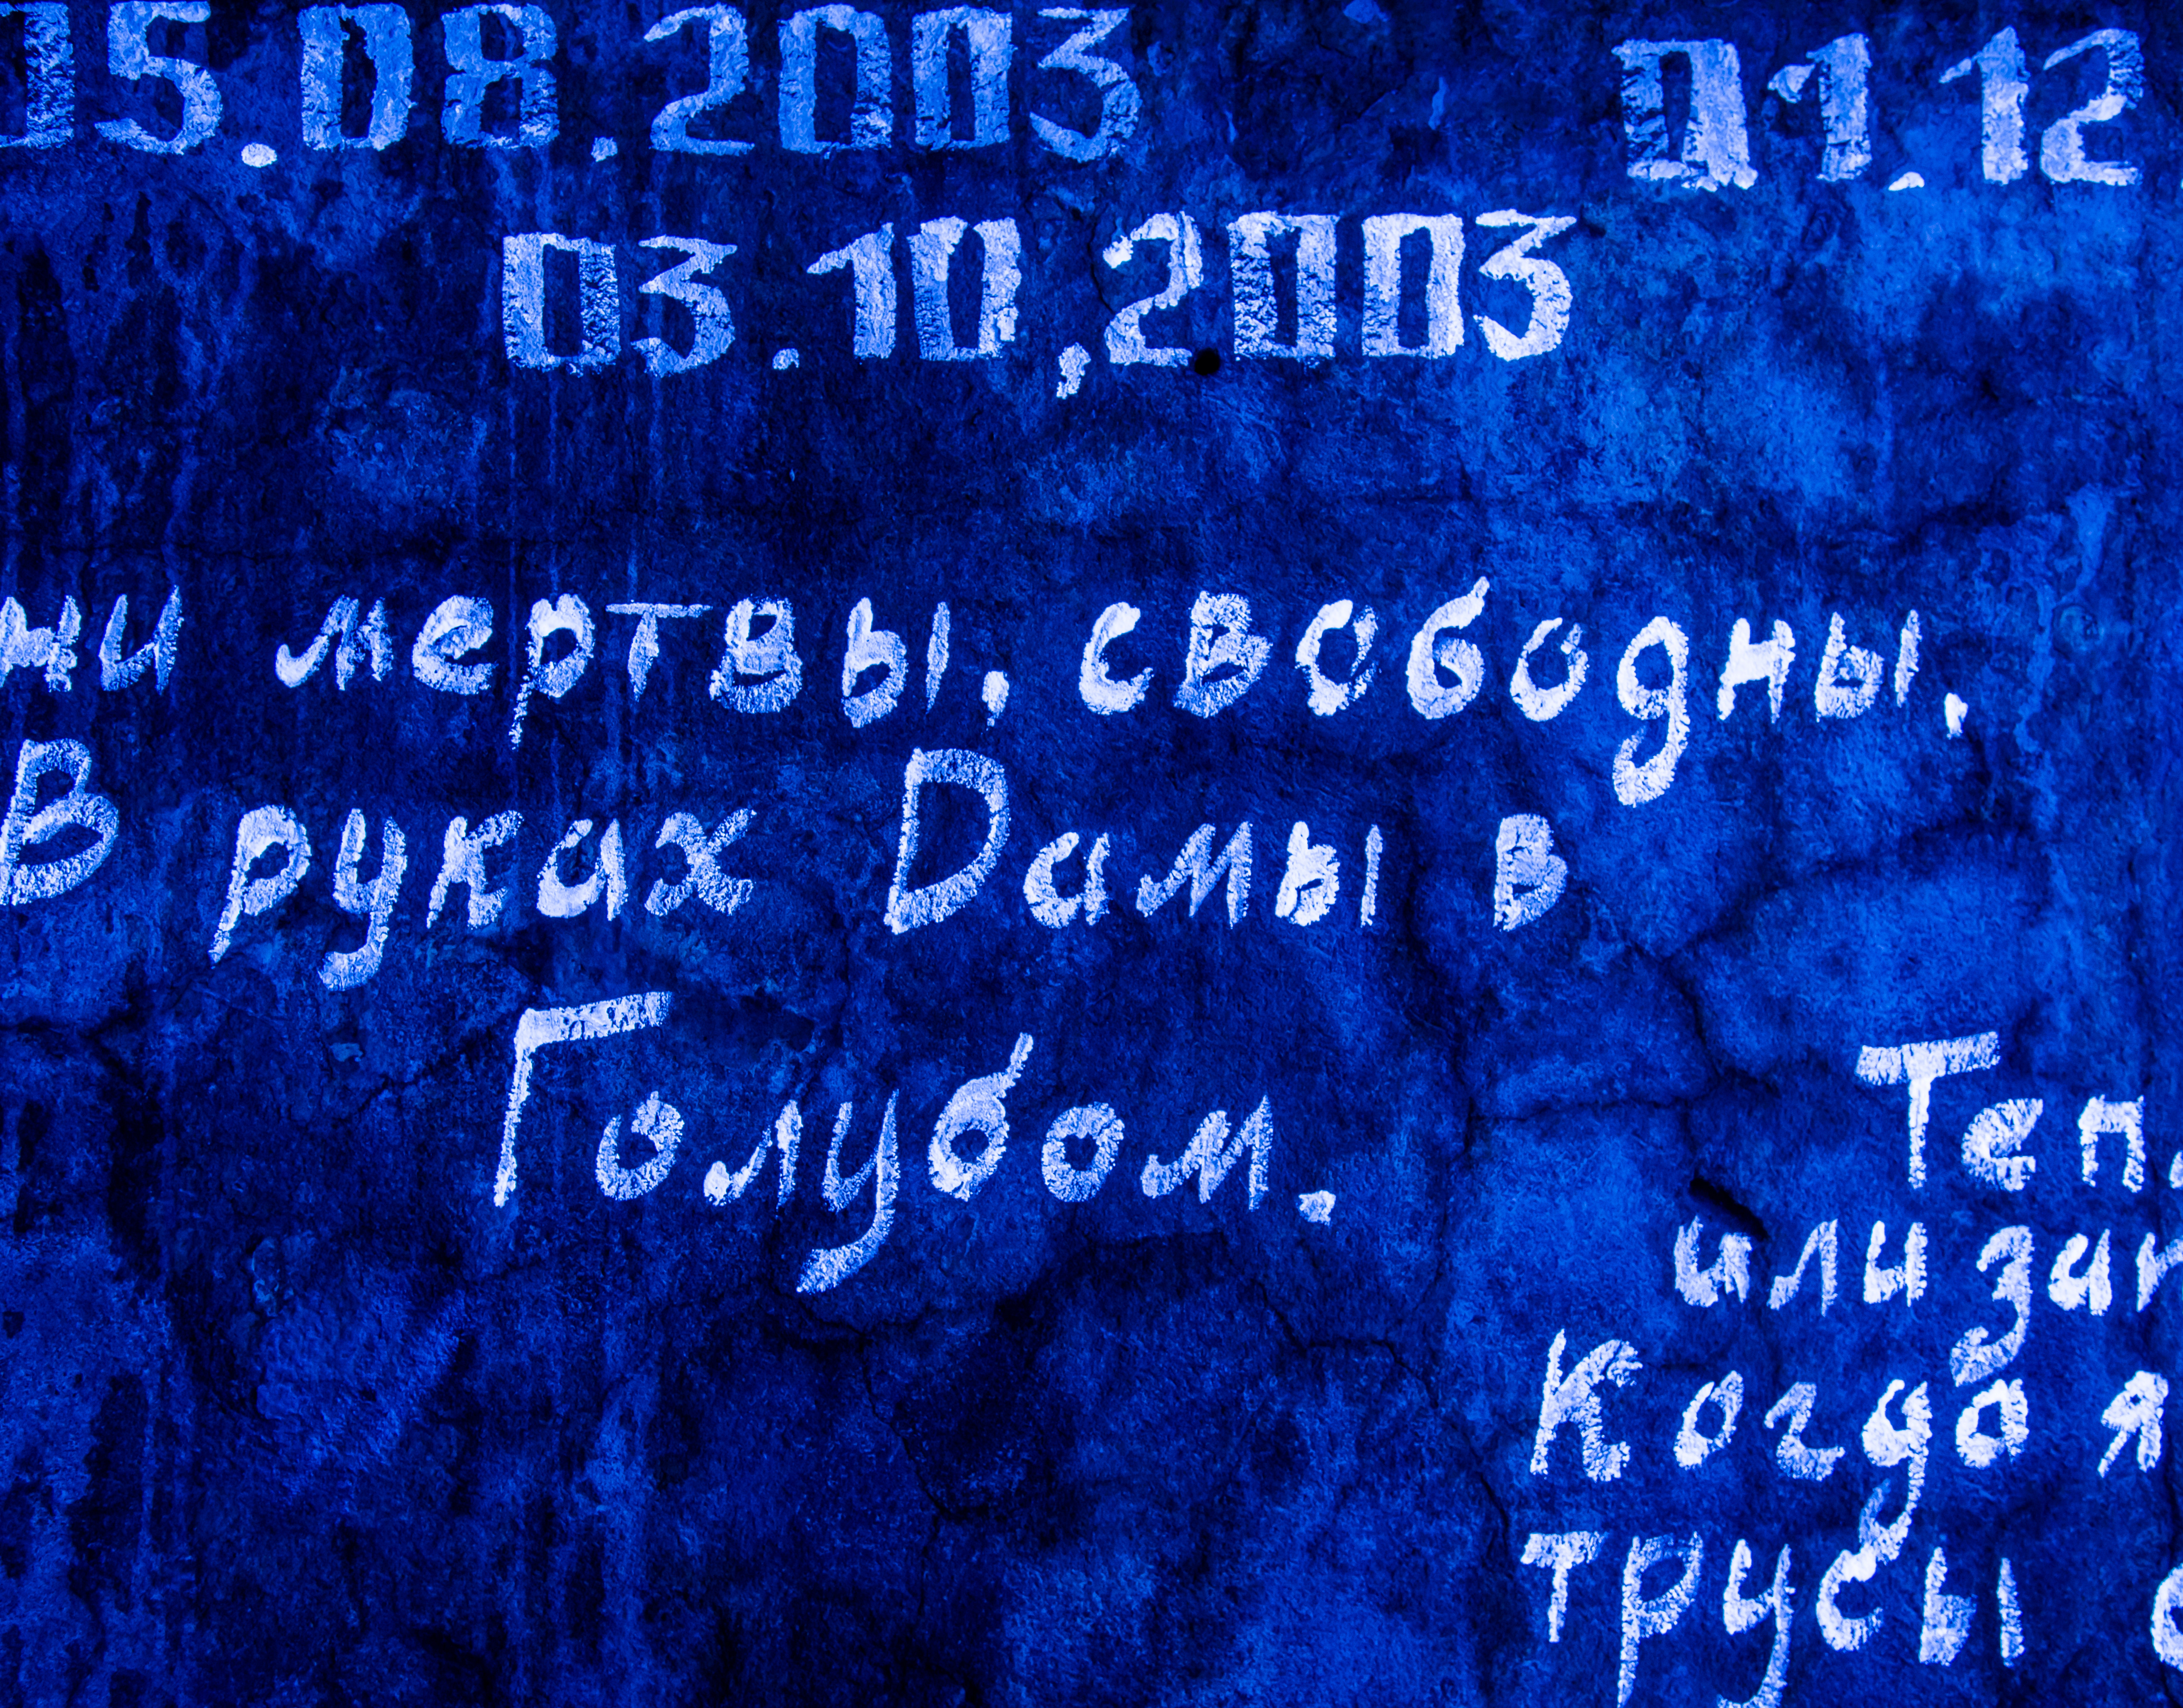 15.08.2003
01.12
03.10,2003
ни мертвы, свободны,
В руках Дамы в
Голубом.
Теп
или зап
Когда я
трусы